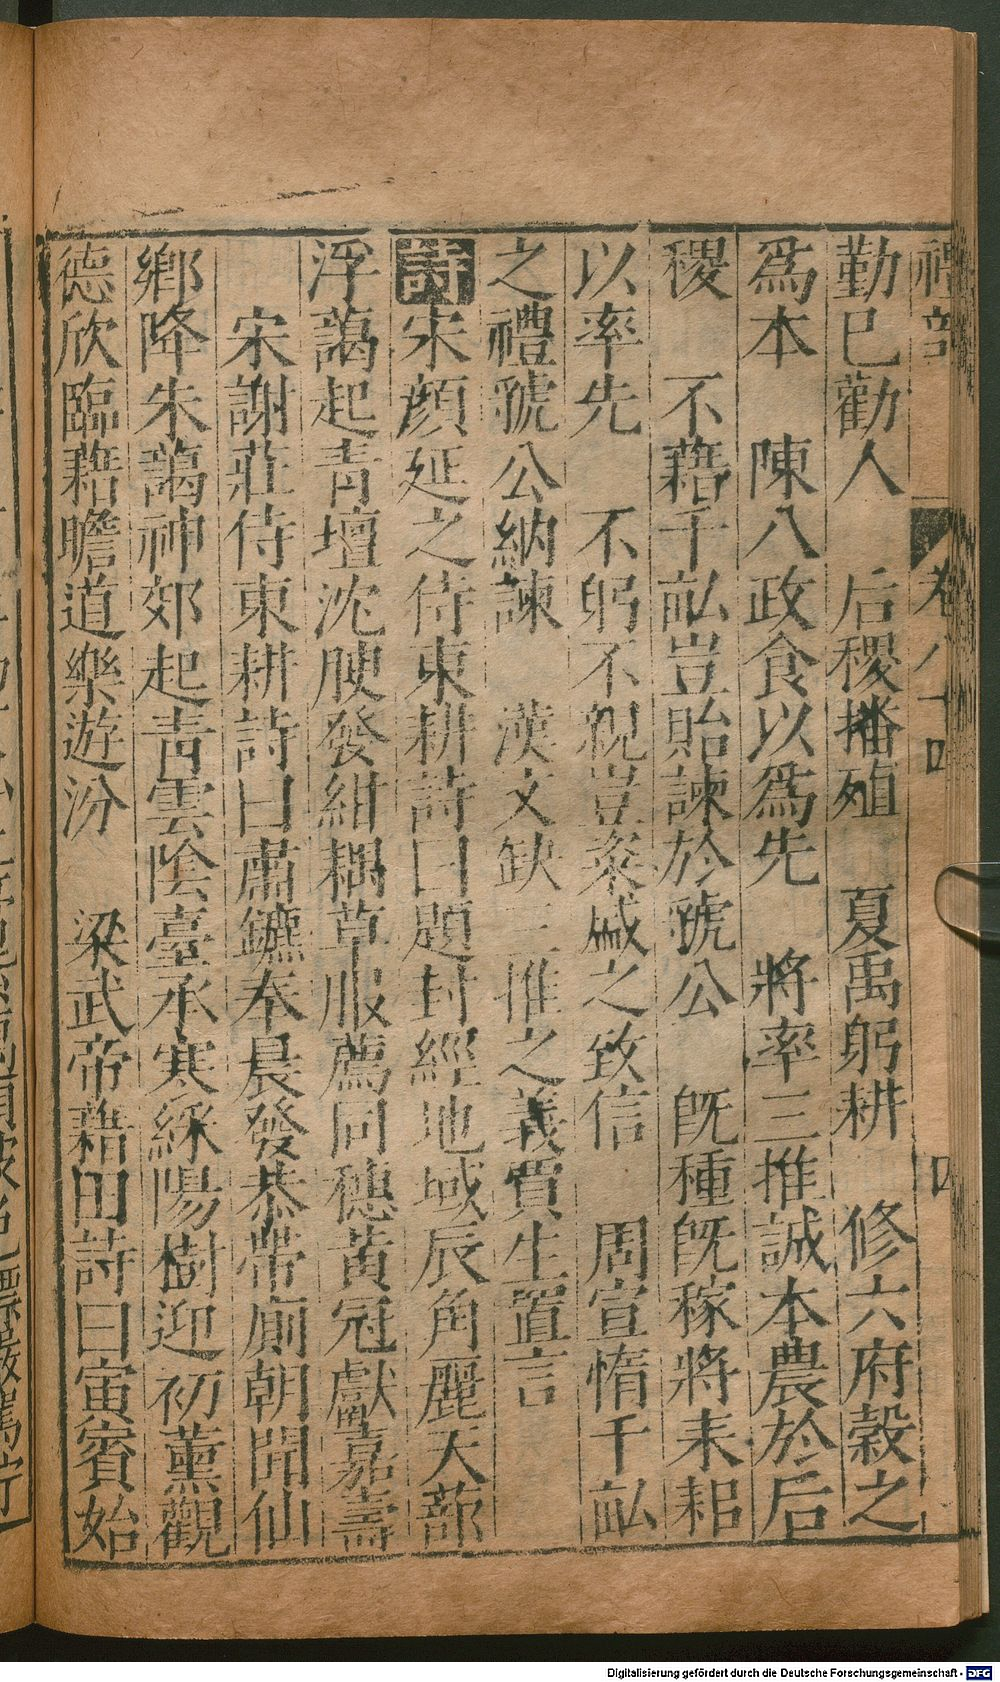 禮部 卷八十四 四
勤已勸人 后稷播殖 夏禹躬耕 修六府穀之
爲本 陳八政食以爲先 將率三推誠本農於后
稷 不藉千畝豈貽諫於虢公 旣種旣稼將耒耜
以率先 不躬不親豈粢盛之致信 周宣惰千畝
之禮虢公納諫 漢文缺三推之義賈生置言
詩宋顔延之侍東耕詩曰題封經地域辰角麗天蔀
浮藹起靑壇沈腴發紺耦草服薦同穗黃冠獻嘉壽
宋謝莊侍東耕詩曰肅鑣奉晨發恭帶廁朝聞仙
鄉降朱藹神郊起靑雲陰臺承寒綵陽樹迎初薰觀
德欣臨藉瞻道樂遊汾 梁武帝藉田詩曰寅賓始
Digitalisierung gefördert durch die Deutsche Forschungsgemeinschaft - DFG